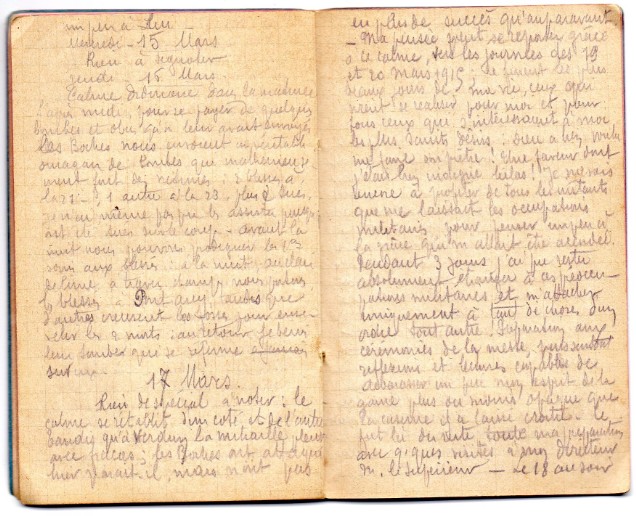 un peu à
Mercredi - 15 Mars
Rien à signaler
Jeudi - 16 Mars
Calme ordinaire dans la matinée
l'après midi, pour se payer de quelques
bombes et obus qu'on leur avait envoyés
les Boches nous envoient un véritable
ouragan de bombes que malheureuse-
ment font des victimes : 3 blessés à
la 21 : 1 autre à la 23, plus 2 tués,
je n'ai même pas pu les assister puisqu'
ont été tués sur le coup - avant la
nuit nous pouvons prodiguer les 1ers
soins aux blessés : à la nuit, au clair
de lune, à travers champs, nous portons
le blessé à Pont tandis que
d'autres creusent les fosses pour ense-
velir les 2 morts : au retour je bénis
leur tombe que se referme
sur
17 Mars.
Rien de spécial à noter : le
calme se rétablit d'un côté et de l'autre
tandis qu'à Verdun la mitraille pleut
avec : les Boches ont attaqué
hier paraît-il, mais n'ont pas
eu plus de succès qu'auparavant
- Ma pensée peut se reporter grâce
à ce calme, vers les journées des 19
et 20 Mars 1915 : ce furent les plus
beaux jours de ma vie, ceux qui
virent se réaliser pour moi et pour
tous ceux que s'intéressaient à moi
les plus saints désirs : Dieu a bien voulu
me faire son prêtre ! Une faveur dont
j'étais bien indigne hélas ! Je
encore à profiter de tous les instants
que me laissait les occupations
militaires pour penser un peu à
la grâce qui m'allait être accordée.
Pendant 3 jours j'ai pu rester
absolument étranger à
pations militaires et m'attacher
uniquement à tant de choses d'un
ordre tout autre : Préparation aux
cérémonies de la messe, puis surtout
réflexions et lectures capables de
débarrasser un peu mon esprit de la
gaine plus ou moins opaque que
la caserne il a laissé croître - Ce
fut lui du reste toute ma préparation
avec qques visites à mon directeur
M. le Supérieur - Le 18 au soir